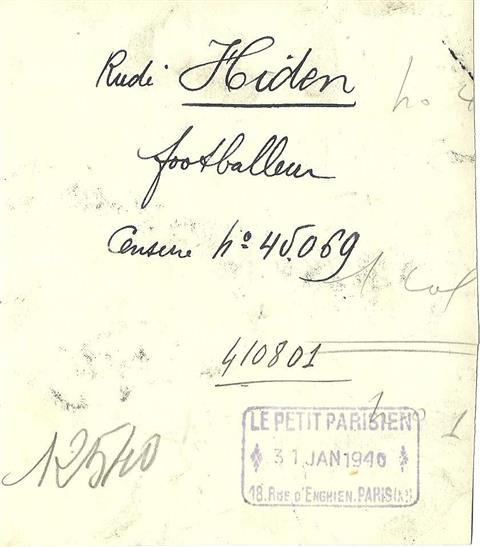 Rudi Hiden
no 4
footballeur
Censure No 45.069
1 col
410801
no 1
12540
LE PETIT PARISIEN
31 JAN 1940
18. RUE D'ENGHIEN. PARIS (X)